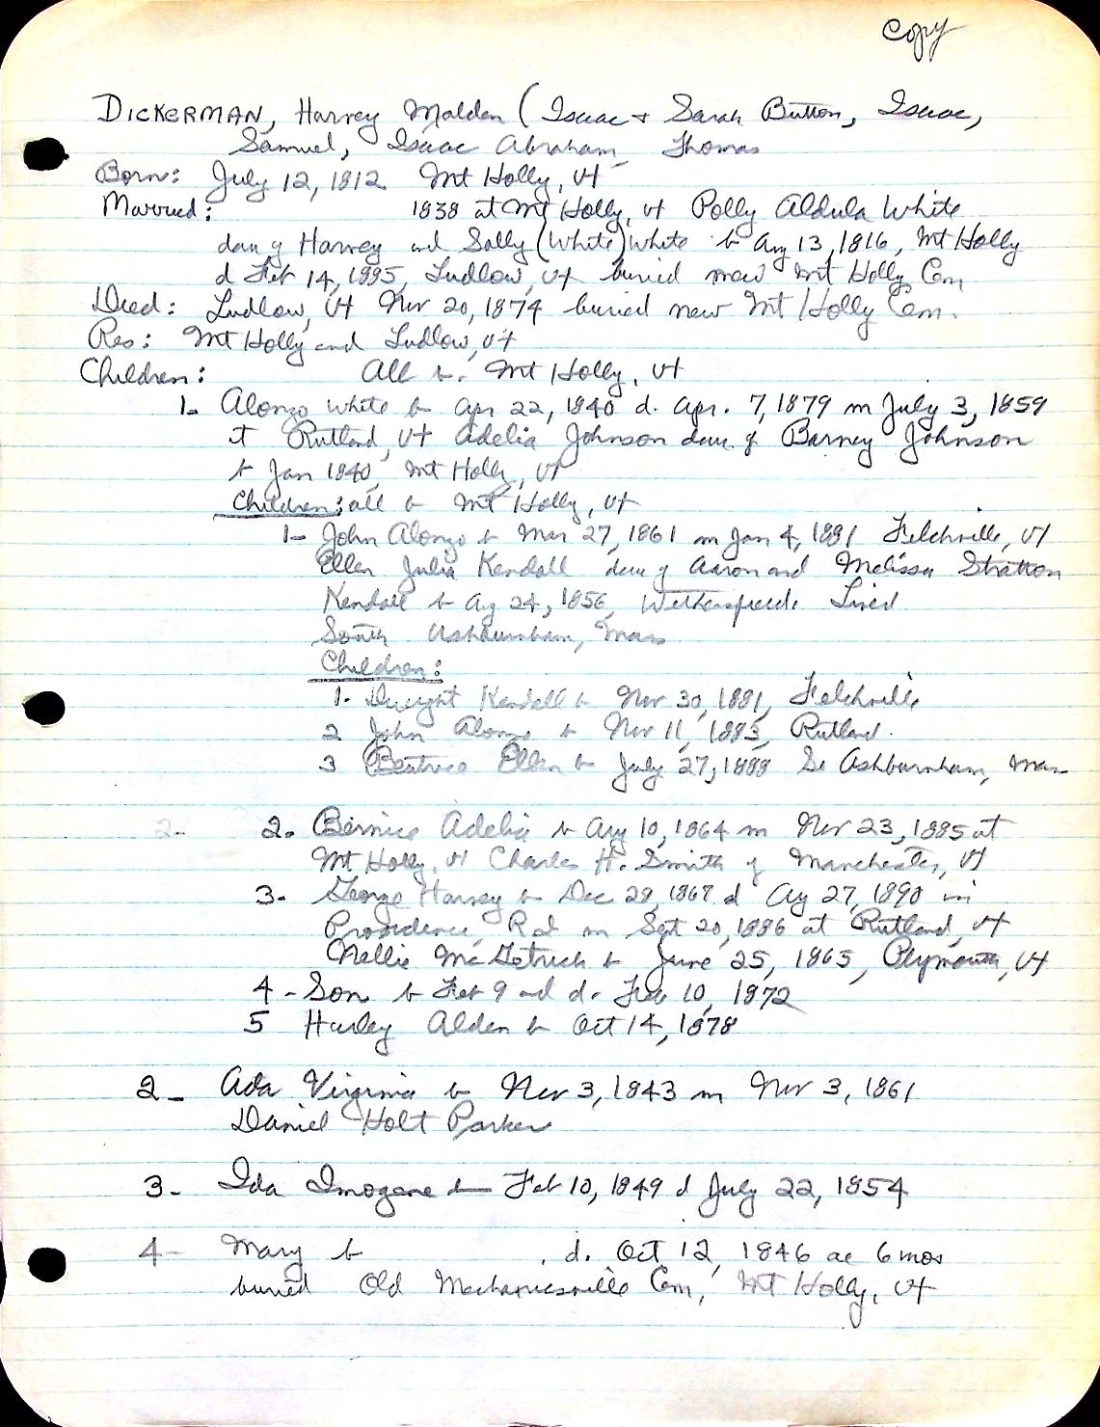 Copy
DICKERMAN, Harvey Malden (Isaac + Sarah Button, Isaac,
Samuel, Isaac Abraham, Thomas
Born: July 12, 1812 Mt Holly, Vt
Married: 1838 at Mt Holly, Vt Polly Aldula White
dau of Harvey and Sally (White) White b Aug 13, 1816, Mt Holly
d Feb 14, 1885, Ludlow, Vt buried new Mt Holly Cem
Died: Ludlow, Vt Nov 20, 1874 buried new Mt Holly Cem.
Res: Mt Holly and Ludlow, Vt
Children: All b. Mt Holly, Vt
1- Alonzo White b Apr 22, 1840 d. Apr. 7, 1879 m July 3, 1859
at Rutland, Vt Adelia Johnson dau of Barney Johnson
b Jan 1840, Mt Holly, Vt
Children: all b Mt Holly, Vt
1- John Alonzo b Mar 27, 1861 m Jan 4, 1881 Felchville, Vt
Ellen Julia Kendall dau of Aaron and Melissa Stratton
Kendall b Ag 24, 1856, Wethersfield. Lived
South Ashburnham, Mass
Children:
1- Dwight Kendall b Nov 30, 1881, Felchville
2 John Alonzo b Nov 11, 1883, Rutland.
3 Beatrice Ellen b July 27, 1888 So Ashburnham, Mass
2- 2. Bernice Adelia b Aug 10, 1864 m Nov 23, 1885 at
Mt Holly, Vt Charles H. Smith of Manchester, Vt
3- George Harvey b Dec 28, 1867 d Ag 27, 1890 in
Providence, R I m Sept 20, 1886 at Rutland, Vt
Nellie McGetrick b June 25, 1865, Plymouth, Vt
4- Son b Feb 9 and d. Feb 10, 1872
5 Harley Alden b Oct 14, 1878
2- Ada Virginia b Nov 3, 1843 m Nov 3, 1861
Daniel Holt Parker
3- Ida Imogene b Feb 10, 1849 d July 22, 1854
4- Mary b , d. Oct 12, 1846 ae 6 mos
buried Old Mechanicsville Cem, Mt Holly, Vt